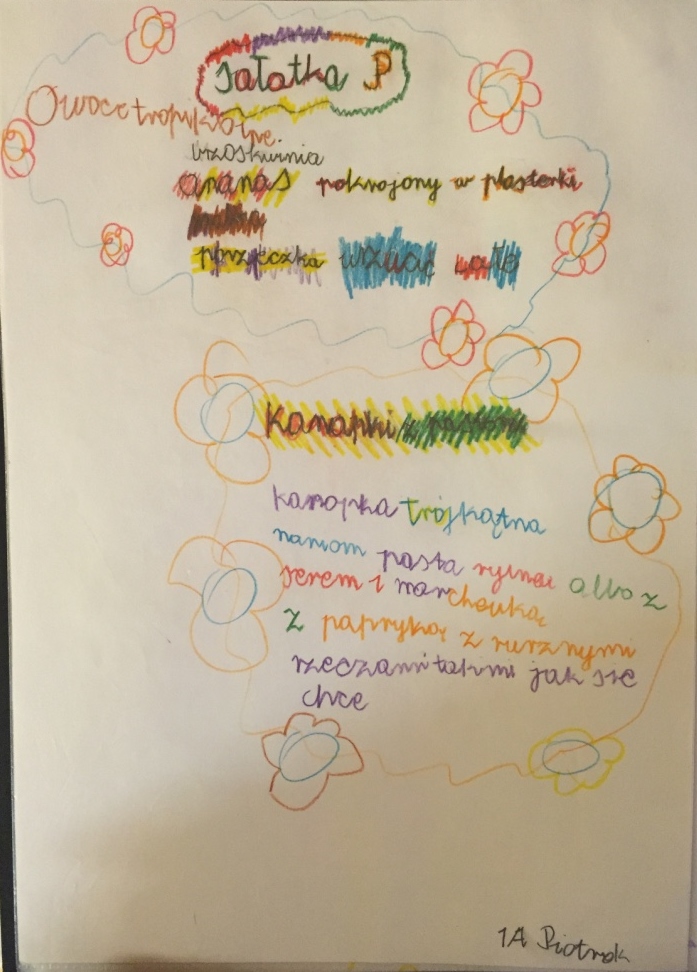 sałatka P
Owoce tropikalne.
brzoskwinia
ananas pokrojony w plasterki
porzęczka wrzucać cało
Kanapki z pastą
kanapka trójkątna
naniom pasta rybna albo z
serem i marchewką
z papryką z rurznymi
rzeczami takimi jak sie
chce
1A Piotrek